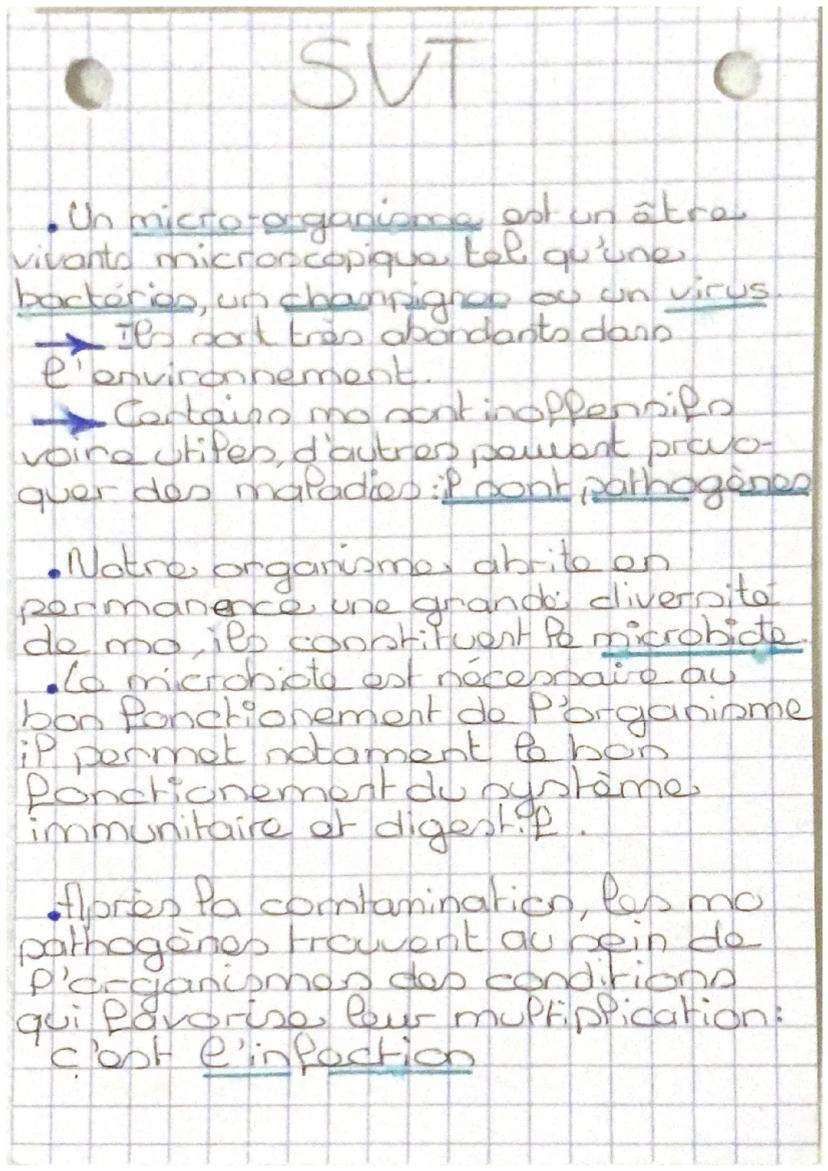 SVT
• Un micro-organisme est un être
vivants microscopique tel qu'une
bactéries, un champignon ou un virus.
→ Ils sont très abondants dans
l'environnement.
→ Certains mo sont inoffensifs
voire utiles, d'autres peuvent provo-
quer des maladies : il sont pathogènes
• Notre organisme abrite en
permanence une grande diversité
de mo, ils constituent le microbiote.
• Le microbiote est nécessaire au
bon fonctionement de l'organisme
il permet notament le bon
fonctionement du système
immunitaire et digestif.
• Après la comtamination, les mo
pathogènes trouvent au sein de
l'organismes des conditions
qui favorise leur multiplication :
c'est l'infection